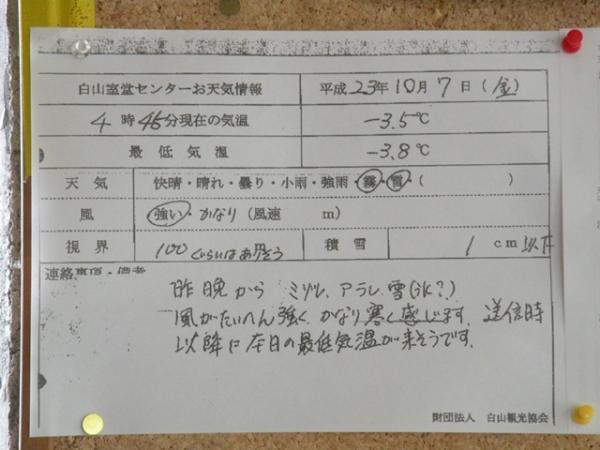 白山室堂センターお天気情報 平成23年10月7日(金)
4時45分現在の気温 -3.5℃
最低気温 -3.8℃
天気 快晴・晴れ・曇り・小雨・強雨・霧・雪・( )
風 強い・かなり(風速 m)
視界 100くらいはありそう 積雪 1cm以下
連絡事項・備考
昨晩から ミゾレ、アラレ、雪(氷?)
風がたいへん強く、かなり寒く感じます。送信時
以降に本日の最低気温が来そうです。
財団法人 白山観光協会